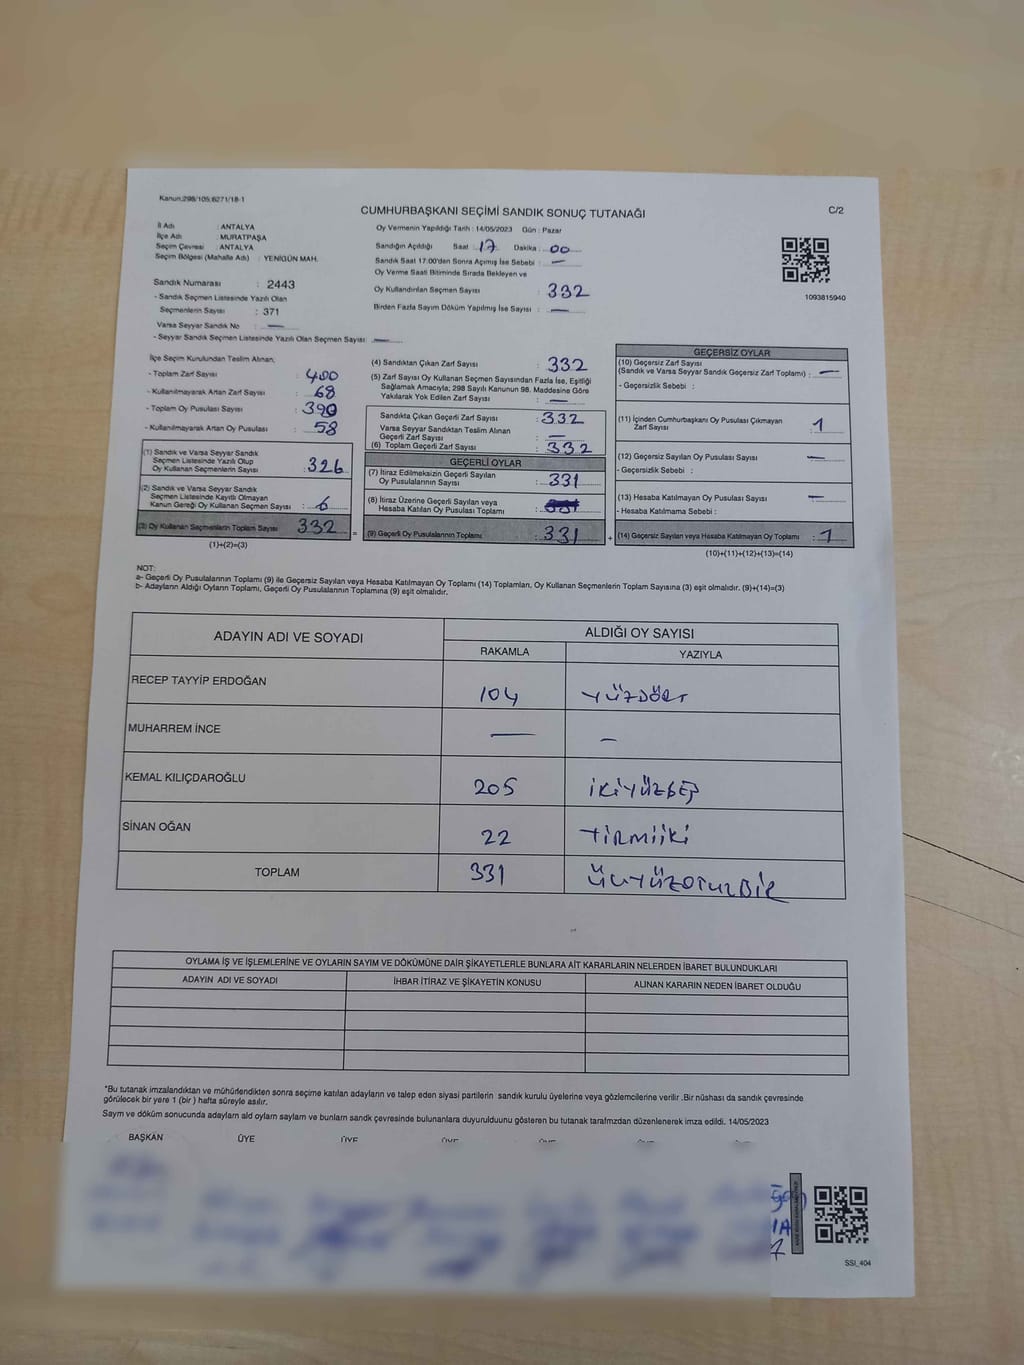 Kanun:298/105;6271/18-1
CUMHURBAŞKANI SEÇİMİ SANDIK SONUÇ TUTANAĞI
C/2
İl Adı : ANTALYA
İlçe Adı : MURATPAŞA
Seçim Çevresi : ANTALYA
Seçim Bölgesi (Mahalle Adı) : YENİGÜN MAH.
Sandık Numarası : 2443
- Sandık Seçmen Listesinde Yazılı Olan
Seçmenlerin Sayısı : 371
Varsa Seyyar Sandık No : —
- Seyyar Sandık Seçmen Listesinde Yazılı Olan Seçmen Sayısı : —
Oy Vermenin Yapıldığı Tarih : 14/05/2023 Gün : Pazar
Sandığın Açıldığı Saat : 17 Dakika : 00
Sandık Saat 17.00'den Sonra Açımış İse Sebebi : —
Oy Verme Saati Bitiminde Sırada Bekleyen ve
Oy Kullandırılan Seçmen Sayısı : 332
Birden Fazla Sayım Döküm Yapılmış İse Sayısı : —
1093815940
İlçe Seçim Kurulundan Teslim Alınan,
- Toplam Zarf Sayısı : 400
- Kullanılmayarak Artan Zarf Sayısı : 68
- Toplam Oy Pusulası Sayısı : 390
- Kullanılmayarak Artan Oy Pusulası : 58
(1) Sandık ve Varsa Seyyar Sandık
Seçmen Listesinde Yazılı Olup
Oy Kullanan Seçmenlerin Sayısı : 326
(2) Sandık ve Varsa Seyyar Sandık
Seçmen Listesinde Kayıtlı Olmayan
Kanun Gereği Oy Kullanan Seçmen Sayısı : 6
(3) Oy Kullanan Seçmenlerin Toplam Sayısı 332
(1)+(2)=(3)
(4) Sandıktan Çıkan Zarf Sayısı : 332
(5) Zarf Sayısı Oy Kullanan Seçmen Sayısından Fazla İse, Eşitliği
Sağlamak Amacıyla; 298 Sayılı Kanunun 98. Maddesine Göre
Yakılarak Yok Edilen Zarf Sayısı : —
Sandıkta Çıkan Geçerli Zarf Sayısı : 332
Varsa Seyyar Sandıktan Teslim Alınan
Geçerli Zarf Sayısı : —
(6) Toplam Geçerli Zarf Sayısı : 332
GEÇERLİ OYLAR
(7) İtiraz Edilmeksizin Geçerli Sayılan
Oy Pusulalarının Sayısı : 331
(8) İtiraz Üzerine Geçerli Sayılan veya
Hesaba Katılan Oy Pusulası Toplamı :
= (9) Geçerli Oy Pusulalarının Toplamı : 331
GEÇERSİZ OYLAR
(10) Geçersiz Zarf Sayısı
(Sandık ve Varsa Seyyar Sandık Geçersiz Zarf Toplamı) : —
- Geçersizlik Sebebi :
(11) İçinden Cumhurbaşkanı Oy Pusulası Çıkmayan
Zarf Sayısı : 1
(12) Geçersiz Sayılan Oy Pusulası Sayısı : —
- Geçersizlik Sebebi :
(13) Hesaba Katılmayan Oy Pusulası Sayısı : —
- Hesaba Katılmama Sebebi :
+ (14) Geçersiz Sayılan veya Hesaba Katılmayan Oy Toplamı : 1
(10)+(11)+(12)+(13)=(14)
NOT:
a- Geçerli Oy Pusulalarının Toplamı (9) ile Geçersiz Sayılan veya Hesaba Katılmayan Oy Toplamı (14) Toplamları, Oy Kullanan Seçmenlerin Toplam Sayısına (3) eşit olmalıdır. (9)+(14)=(3)
b- Adayların Aldığı Oyların Toplamı, Geçerli Oy Pusulalarının Toplamına (9) eşit olmalıdır.
ADAYIN ADI VE SOYADI ALDIĞI OY SAYISI
RAKAMLA YAZIYLA
RECEP TAYYİP ERDOĞAN 104 YÜZDÖRT
MUHARREM İNCE — –
KEMAL KILIÇDAROĞLU 205 İKİYÜZBEŞ
SİNAN OĞAN 22 YİRMİİKİ
TOPLAM 331 ÜÇYÜZOTUZBİR
OYLAMA İŞ VE İŞLEMLERİNE VE OYLARIN SAYIM VE DÖKÜMÜNE DAİR ŞİKAYETLERLE BUNLARA AİT KARARLARIN NELERDEN İBARET BULUNDUKLARI
ADAYIN ADI VE SOYADI İHBAR İTİRAZ VE ŞİKAYETİN KONUSU ALINAN KARARIN NEDEN İBARET OLDUĞU
*Bu tutanak imzalandıktan ve mühürlendikten sonra seçime katılan adayların ve talep eden siyasi partilerin sandık kurulu üyelerine veya gözlemcilerine verilir .Bir nüshası da sandık çevresinde
görülecek bir yere 1 (bir ) hafta süreyle asılır.
Sayım ve döküm sonucunda adayların aldı oyların sayların ve bunların sandk çevresinde bulunanlara duyurulduunu gösteren bu tutanak tarafmzdan düzenlenerek imza edildi. 14/05/2023
BAŞKAN ÜYE ÜYE
SSI_404